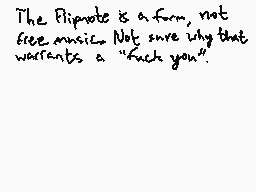 The Flipnote is a form, not
free music. Not sure why that
warrants a "fuck you".